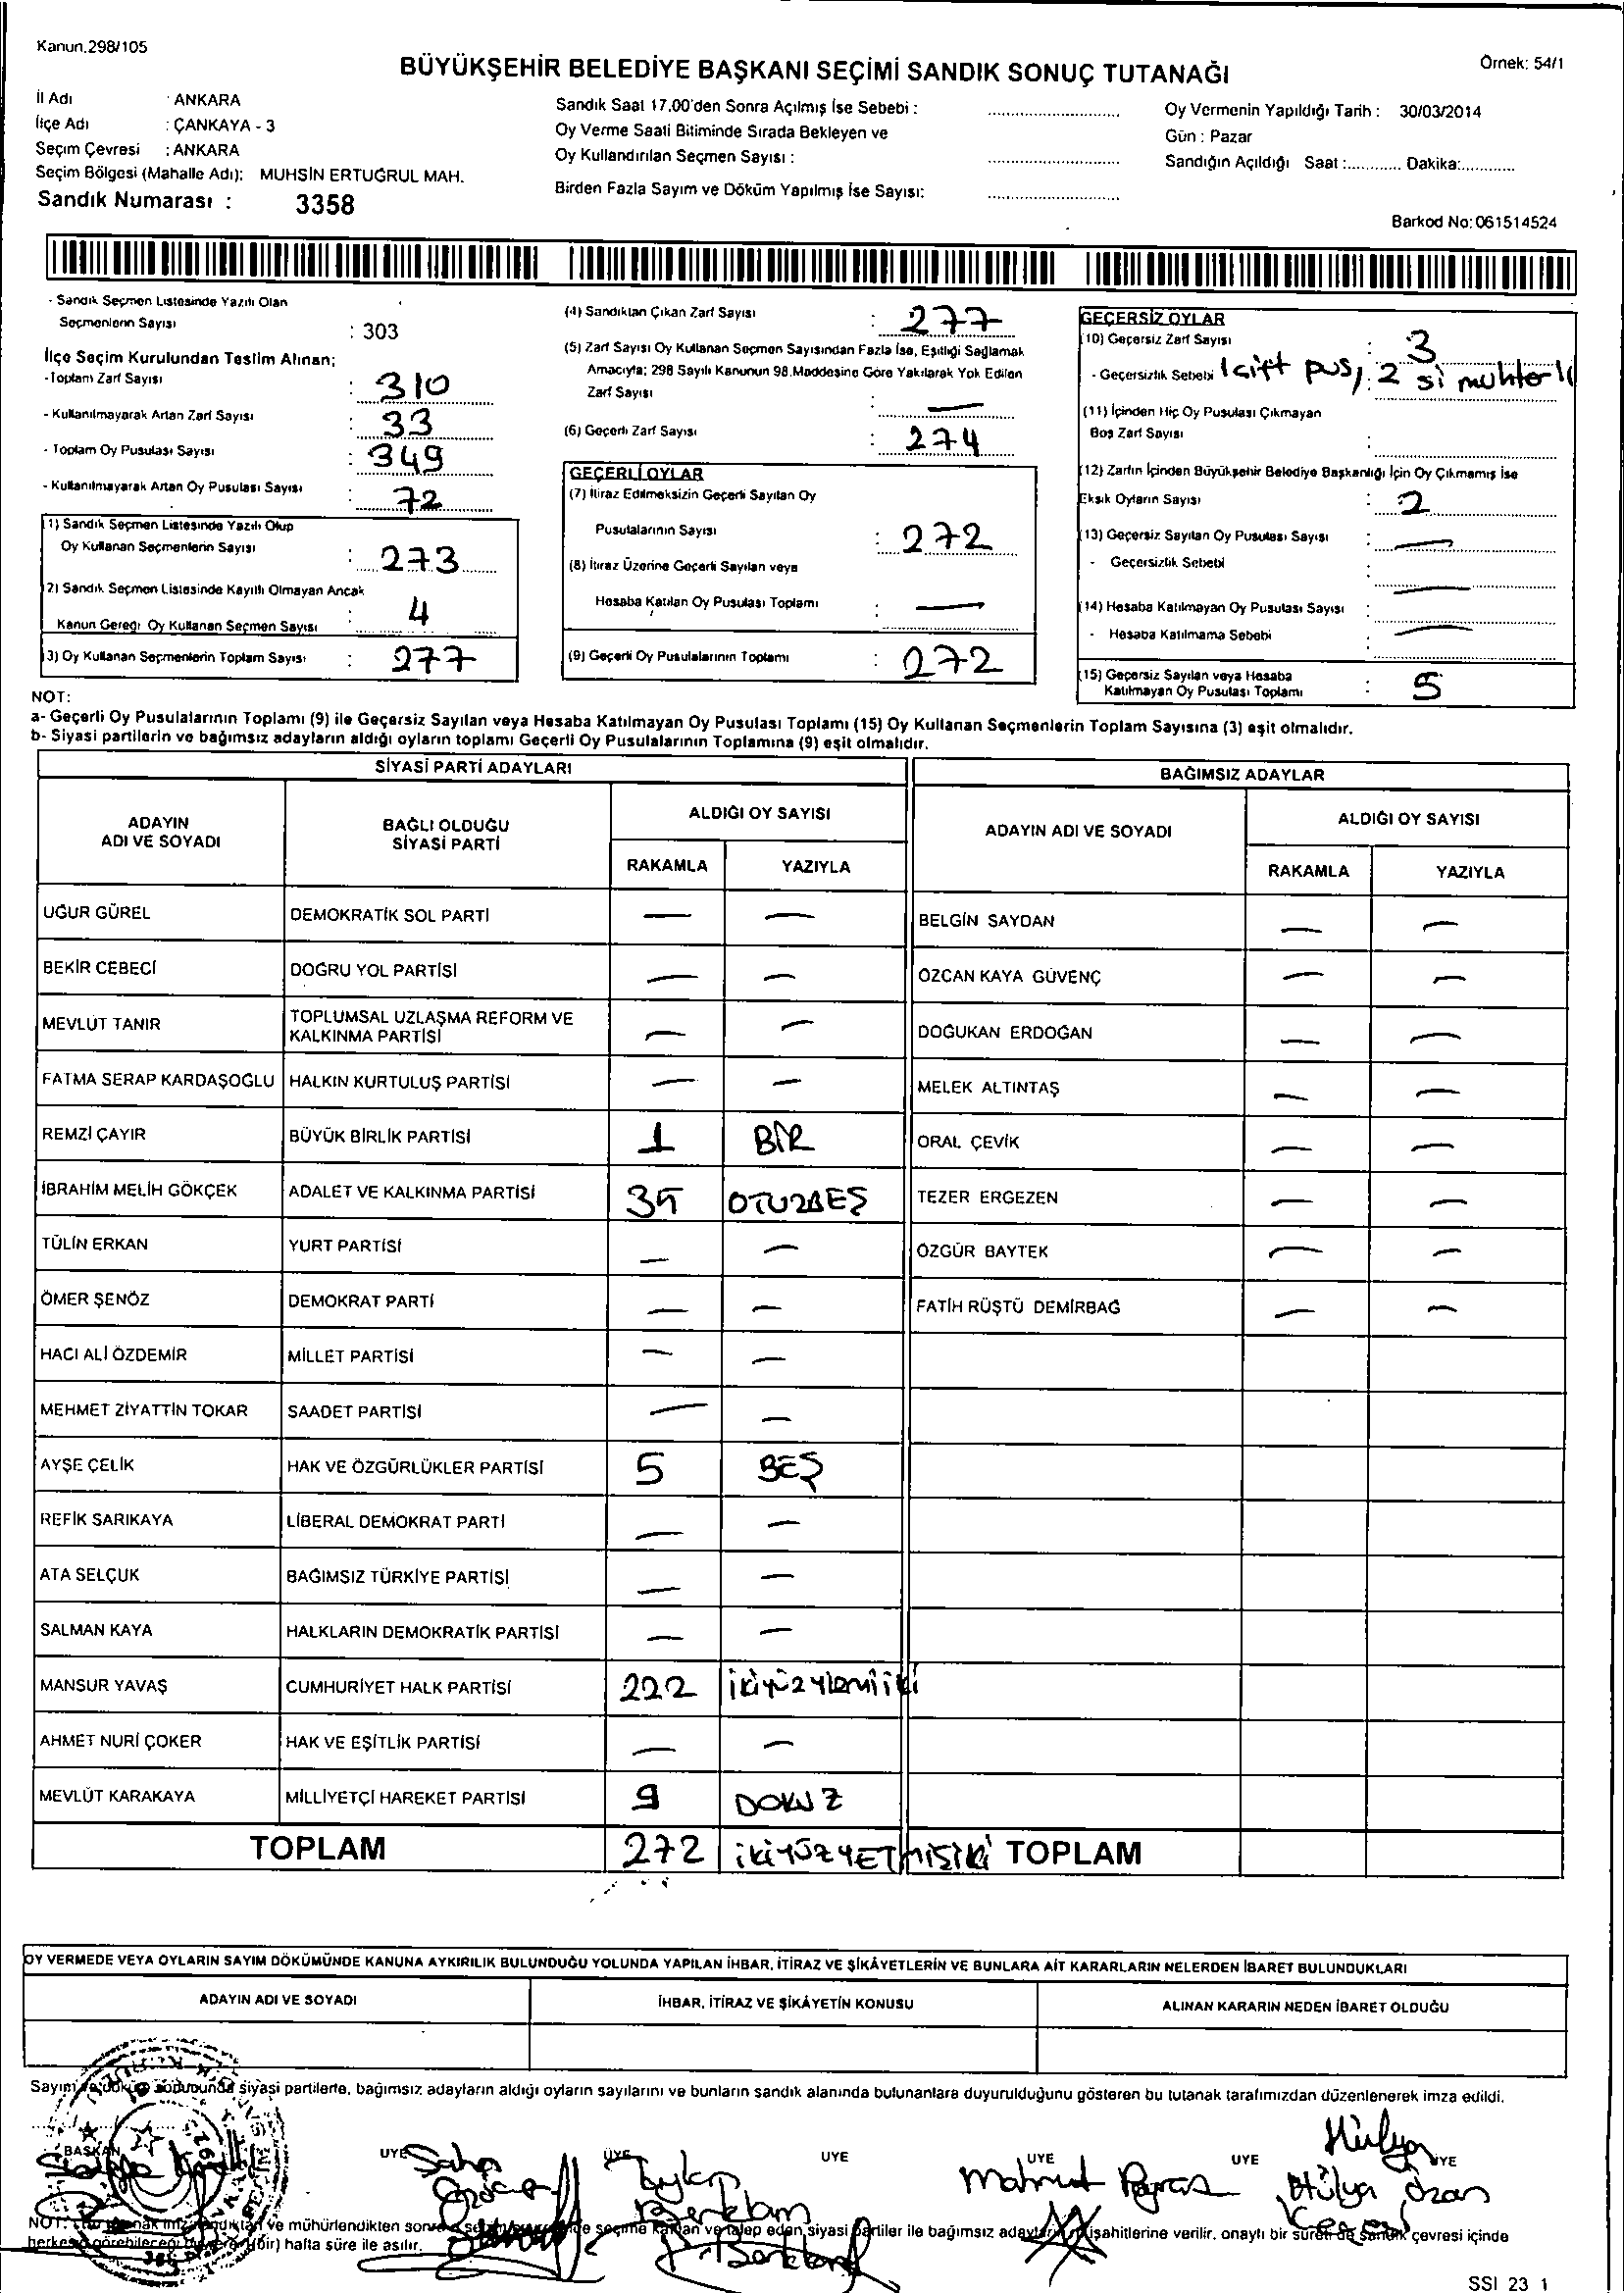 Kanun.298/105
BÜYÜKŞEHİR BELEDİYE BAŞKANI SEÇİMİ SANDIK SONUÇ TUTANAĞI
Örnek: 54/1
İl Adı : ANKARA
İlçe Adı : ÇANKAYA - 3
Seçim Çevresi : ANKARA
Seçim Bölgesi (Mahalle Adı): MUHSİN ERTUĞRUL MAH.
Sandık Numarası : 3358
Sandık Saat 17.00'den Sonra Açılmış İse Sebebi :
Oy Verme Saati Bitiminde Sırada Bekleyen ve
Oy Kullandırılan Seçmen Sayısı :
Birden Fazla Sayım ve Döküm Yapılmış İse Sayısı:
Oy Vermenin Yapıldığı Tarih : 30/03/2014
Gün : Pazar
Sandığın Açıldığı Saat :............ Dakika:............
Barkod No: 061514524
- Sandık Seçmen Listesinde Yazılı Olan
Seçmenlerin Sayısı : 303
İlçe Seçim Kurulundan Teslim Alınan;
- Toplam Zarf Sayısı : 310
- Kullanılmayarak Artan Zarf Sayısı : 33
- Toplam Oy Pusulası Sayısı : 349
- Kullanılmayarak Artan Oy Pusulası Sayısı : 72
(1) Sandık Seçmen Listesinde Yazılı Olup
Oy Kullanan Seçmenlerin Sayısı : 273
(2) Sandık Seçmen Listesinde Kayıtlı Olmayan Ancak
Kanun Gereği Oy Kullanan Seçmen Sayısı : 4
(3) Oy Kullanan Seçmenlerin Toplam Sayısı : 277
(4) Sandıktan Çıkan Zarf Sayısı : 277
(5) Zarf Sayısı Oy Kullanan Seçmen Sayısından Fazla İse, Eşitliği Sağlamak
Amacıyla; 298 Sayılı Kanunun 98.Maddesine Göre Yakılarak Yok Edilen
Zarf Sayısı : —
(6) Geçerli Zarf Sayısı : 274
GEÇERLİ OYLAR
(7) İtiraz Edilmeksizin Geçerli Sayılan Oy
Pusulalarının Sayısı : 272
(8) İtiraz Üzerine Geçerli Sayılan veya
Hesaba Katılan Oy Pusulası Toplamı : —
(9) Geçerli Oy Pusulalarının Toplamı : 272
GEÇERSİZ OYLAR
(10) Geçersiz Zarf Sayısı : 3
- Geçersizlik Sebebi 1 çift pus, : 2 si
(11) İçinden Hiç Oy Pusulası Çıkmayan
Boş Zarf Sayısı :
(12) Zarfın İçinden Büyükşehir Belediye Başkanlığı İçin Oy Çıkmamış İse
Eksik Oyların Sayısı : 2
(13) Geçersiz Sayılan Oy Pusulası Sayısı : —
- Geçersizlik Sebebi : —
(14) Hesaba Katılmayan Oy Pusulası Sayısı : —
- Hesaba Katılmama Sebebi :
(15) Geçersiz Sayılan veya Hesaba
Katılmayan Oy Pusulası Toplamı : 5
NOT:
a- Geçerli Oy Pusulalarının Toplamı (9) ile Geçersiz Sayılan veya Hesaba Katılmayan Oy Pusulası Toplamı (15) Oy Kullanan Seçmenlerin Toplam Sayısına (3) eşit olmalıdır.
b- Siyasi partilerin ve bağımsız adayların aldığı oyların toplamı Geçerli Oy Pusulalarının Toplamına (9) eşit olmalıdır.
SİYASİ PARTİ ADAYLARI
BAĞIMSIZ ADAYLAR
ADAYIN ADI VE SOYADI
BAĞLI OLDUĞU SİYASİ PARTİ
ALDIĞI OY SAYISI
RAKAMLA YAZIYLA
ADAYIN ADI VE SOYADI
ALDIĞI OY SAYISI
RAKAMLA YAZIYLA
UĞUR GÜREL DEMOKRATİK SOL PARTİ — — BELGİN SAYDAN — —
BEKİR CEBECİ DOĞRU YOL PARTİSİ — — ÖZCAN KAYA GÜVENÇ — —
MEVLÜT TANIR TOPLUMSAL UZLAŞMA REFORM VE KALKINMA PARTİSİ — — DOĞUKAN ERDOĞAN — —
FATMA SERAP KARDAŞOĞLU HALKIN KURTULUŞ PARTİSİ — — MELEK ALTINTAŞ — —
REMZİ ÇAYIR BÜYÜK BİRLİK PARTİSİ 1 BİR ORAL ÇEVİK — —
İBRAHİM MELİH GÖKÇEK ADALET VE KALKINMA PARTİSİ 35 OTUZBEŞ TEZER ERGEZEN — —
TÜLİN ERKAN YURT PARTİSİ — — ÖZGÜR BAYTEK — —
ÖMER ŞENÖZ DEMOKRAT PARTİ — — FATİH RÜŞTÜ DEMİRBAĞ — —
HACI ALİ ÖZDEMİR MİLLET PARTİSİ — —
MEHMET ZİYATTİN TOKAR SAADET PARTİSİ — —
AYŞE ÇELİK HAK VE ÖZGÜRLÜKLER PARTİSİ 5 BEŞ
REFİK SARIKAYA LİBERAL DEMOKRAT PARTİ — —
ATA SELÇUK BAĞIMSIZ TÜRKİYE PARTİSİ — —
SALMAN KAYA HALKLARIN DEMOKRATİK PARTİSİ — —
MANSUR YAVAŞ CUMHURİYET HALK PARTİSİ 222 ikiyüzyirmiiki
AHMET NURİ ÇOKER HAK VE EŞİTLİK PARTİSİ — —
MEVLÜT KARAKAYA MİLLİYETÇİ HAREKET PARTİSİ 9 DOKUZ
TOPLAM 272 İKİYÜZYETMİŞİKİ TOPLAM
OY VERMEDE VEYA OYLARIN SAYIM DÖKÜMÜNDE KANUNA AYKIRILIK BULUNDUĞU YOLUNDA YAPILAN İHBAR, İTİRAZ VE ŞİKÂYETLERİN VE BUNLARA AİT KARARLARIN NELERDEN İBARET BULUNDUKLARI
ADAYIN ADI VE SOYADI İHBAR, İTİRAZ VE ŞİKÂYETİN KONUSU ALINAN KARARIN NEDEN İBARET OLDUĞU
Sayım ve döküm sonucunda siyasi partilerle, bağımsız adayların aldığı oyların sayılarını ve bunların sandık alanında bulunanlara duyurulduğunu gösteren bu tutanak tarafımızdan düzenlenerek imza edildi.
BAŞKAN ÜYE ÜYE ÜYE ÜYE ÜYE ÜYE
Hülya
Mahmut Hülya Özan
NOT: ve mühürlendikten sonra seçime katılan ve talep eden siyasi partiler ile bağımsız aday müşahitlerine verilir, onaylı bir sureti de sandık çevresi içinde
herkesin görebileceği (bir) hafta süre ile asılır.
SSI 23 1